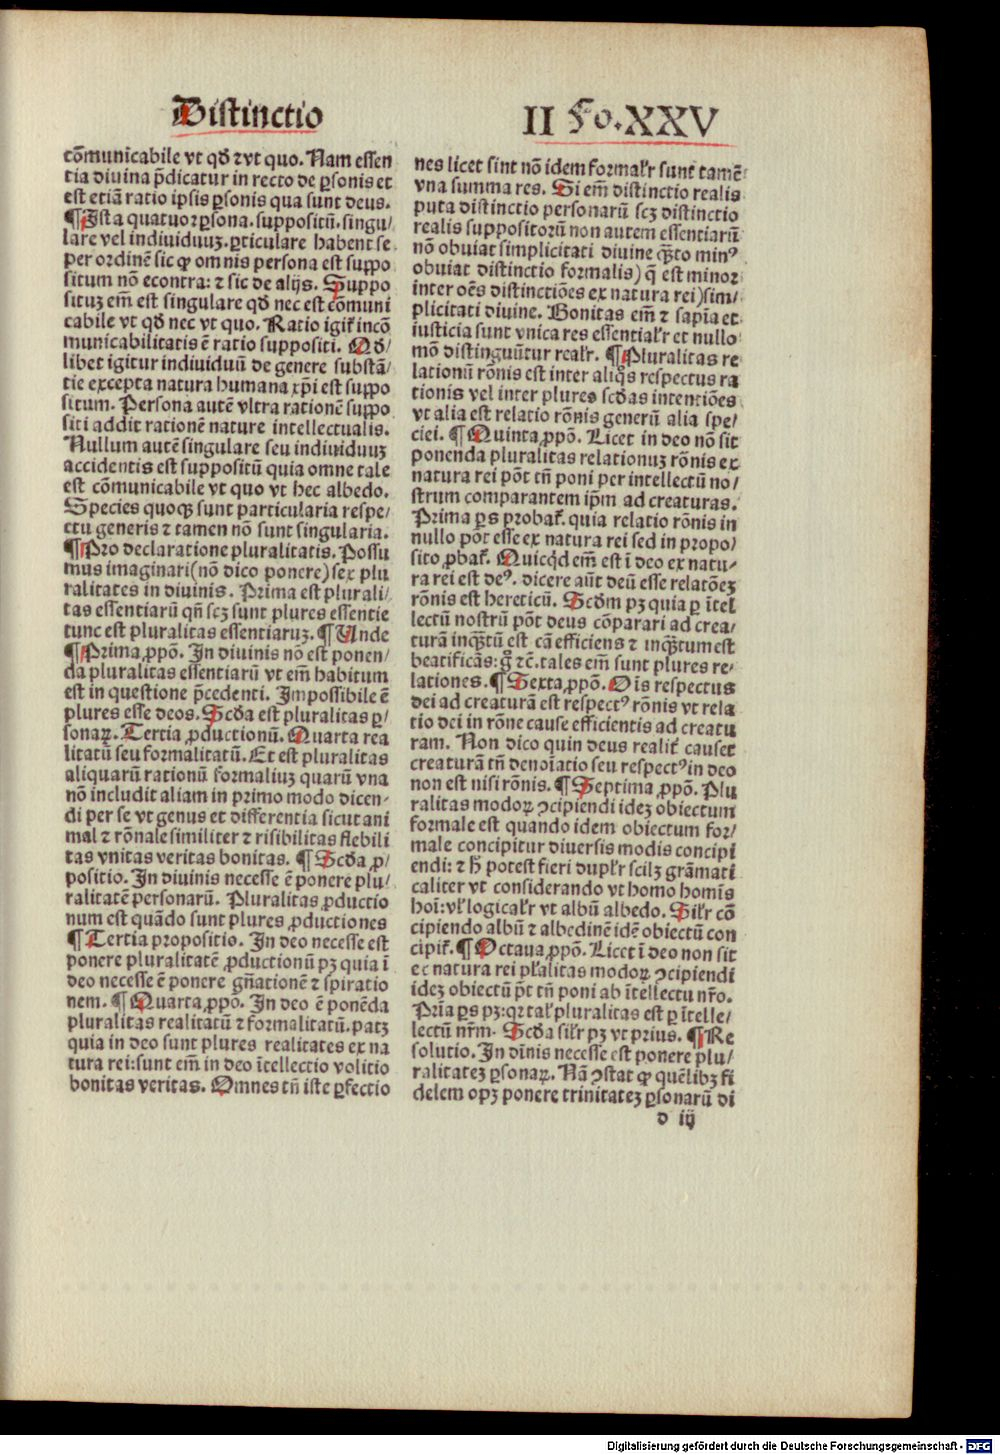 Distinctio
II Fo.XXV
cōmunicabile vt qđ ⁊ vt quo. Nam essen
tia diuina p̄dicatur in recto de ꝑsonis et
est etiā ratio ipsis ꝑsonis qua sunt deus.
¶ Ista quatuor ꝑsona. suppositū. singu/
lare vel indiuiduuꝫ. ꝑticulare habent se
per ordinē sic ꝙ omnis persona est suppo
situm nō econtra: ⁊ sic de alijs. Suppo
situꝫ em̄ est singulare qđ nec est cōmuni
cabile vt qđ nec vt quo. Ratio igit̄ incō
municabilitatis ē ratio suppositi. Qđ/
libet igitur indiuiduū de genere substā/
tie excepta natura humana xp̄i est suppo
situm. Persona autē vltra rationē suppo
siti addit rationē nature intellectualis.
Nullum autē singulare seu indiuiduuꝫ
accidentis est suppositū quia omne tale
est cōmunicabile vt quo vt hec albedo.
Species quoqꝫ sunt particularia respe/
ctu generis ⁊ tamen nō sunt singularia.
¶ Pro declaratione pluralitatis. Possu
mus imaginari (nō dico ponere) sex plu
ralitates in diuinis. Prima est plurali/
tas essentiarū qn̄ scꝫ sunt plures essentie
tunc est pluralitas essentiaruꝫ. ¶ Unde
¶ Prima ꝓpō. In diuinis nō est ponen/
da pluralitas essentiarū vt em̄ habitum
est in questione p̄cedenti. Impossibile ē
plures esse deos. Scđa est pluralitas ꝑ/
sonaꝝ. Tertia ꝓductionū. Quarta rea
litatū seu formalitatū. Et est pluralitas
aliquarū rationū formaliuꝫ quarū vna
nō includit aliam in primo modo dicen/
di per se vt genus et differentia sicut ani
mal ⁊ rōnale similiter ⁊ risibilitas flebili
tas vnitas veritas bonitas. ¶ Scđa ꝓ/
positio. In diuinis necesse ē ponere plu/
ralitatē personarū. Pluralitas ꝓductio
num est quādo sunt plures ꝓductiones
¶ Tertia propositio. In deo necesse est
ponere pluralitatē ꝓductionū pꝫ quia ī
deo necesse ē ponere gn̄ationē ⁊ spiratio
nem. ¶ Quarta ꝓpō. In deo ē ponēda
pluralitas realitatū ⁊ formalitatū. patꝫ
quia in deo sunt plures realitates ex na
tura rei: sunt em̄ in deo ītellectio volitio
bonitas veritas. Omnes tn̄ iste ꝑfectio
nes licet sint nō idem formalr̄ sunt tamē
vna summa res. Si em̄ distinctio realis
puta distinctio personarū scꝫ distinctio
realis suppositorū non autem essentiarū
nō obuiat simplicitati diuine qͣ̄to minꝰ
obuiat distinctio formalis) q̄ est minor
inter oēs distinctiōes ex natura rei) sim/
plicitati diuine. Bonitas em̄ ⁊ sapīa et
iusticia sunt vnica res essentialr̄ et nullo
mō distinguūtur realr̄. ¶ Pluralitas re
lationū rōnis est inter aliqͦs respectus ra
tionis vel inter plures scđas intentiōes
vt alia est relatio rōnis generū alia spe/
ciei. ¶ Quinta ꝓpō. Licet in deo nō sit
ponenda pluralitas relationuꝫ rōnis ex
natura rei pōt tn̄ poni per intellectū no/
strum comparantem ip̄m ad creaturas.
Prima ꝑs probat̄. quia relatio rōnis in
nullo pōt esse ex natura rei sed in propo/
sito ꝓbat̄. Quicqͥd em̄ est ī deo ex natu/
ra rei est deꝰ. dicere aūt deū esse relatōeꝫ
rōnis est hereticū. Scđm pꝫ quia ꝑ ītel
lectū nostrū pōt deus cōparari ad crea/
turā inqͣ̄tū est cā efficiens ⁊ inqͣ̄tum est
beatificās: gͦ ⁊c̄. tales em̄ sunt plures re/
lationes. ¶ Sexta ꝓpō. Oīs respectus
dei ad creaturā est respectꝰ rōnis vt rela
tio dei in rōne cause efficientis ad creatu
ram. Non dico quin deus realit̄ causet
creaturā tn̄ denoīatio seu respectꝰ in deo
non est nisi rōnis. ¶ Septima ꝓpō. Plu
ralitas modoꝝ ↄcipiendi ideꝫ obiectum
formale est quando idem obiectum for/
male concipitur diuersis modis concipi
endi: ⁊ ħ potest fieri duplr̄ scilꝫ grāmati
caliter vt considerando vt homo homīs
hoī: vl̄ logicalr̄ vt albū albedo. Silr̄ cō
cipiendo albū ⁊ albedinē idē obiectū con
cipit̄. ¶ Octaua ꝓpō. Licet ī deo non sit
ex natura rei pl̄alitas modoꝝ ↄcipiendi
ideꝫ obiectū pt̄ tn̄ poni ab ītellectu nr̄o.
Prīa ꝑs pꝫ: qꝛ tal̄ pluralitas est ꝑ ītelle/
lectū nr̄m. Scđa silr̄ pꝫ vt prius. ¶ Re
solutio. In dīnis necesse est ponere plu/
ralitateꝫ ꝑsonaꝝ. Nā ↄstat ꝙ quēlibꝫ fi
delem opꝫ ponere trinitateꝫ ꝑsonarū di
d iij
Digitalisierung gefördert durch die Deutsche Forschungsgemeinschaft - DFG